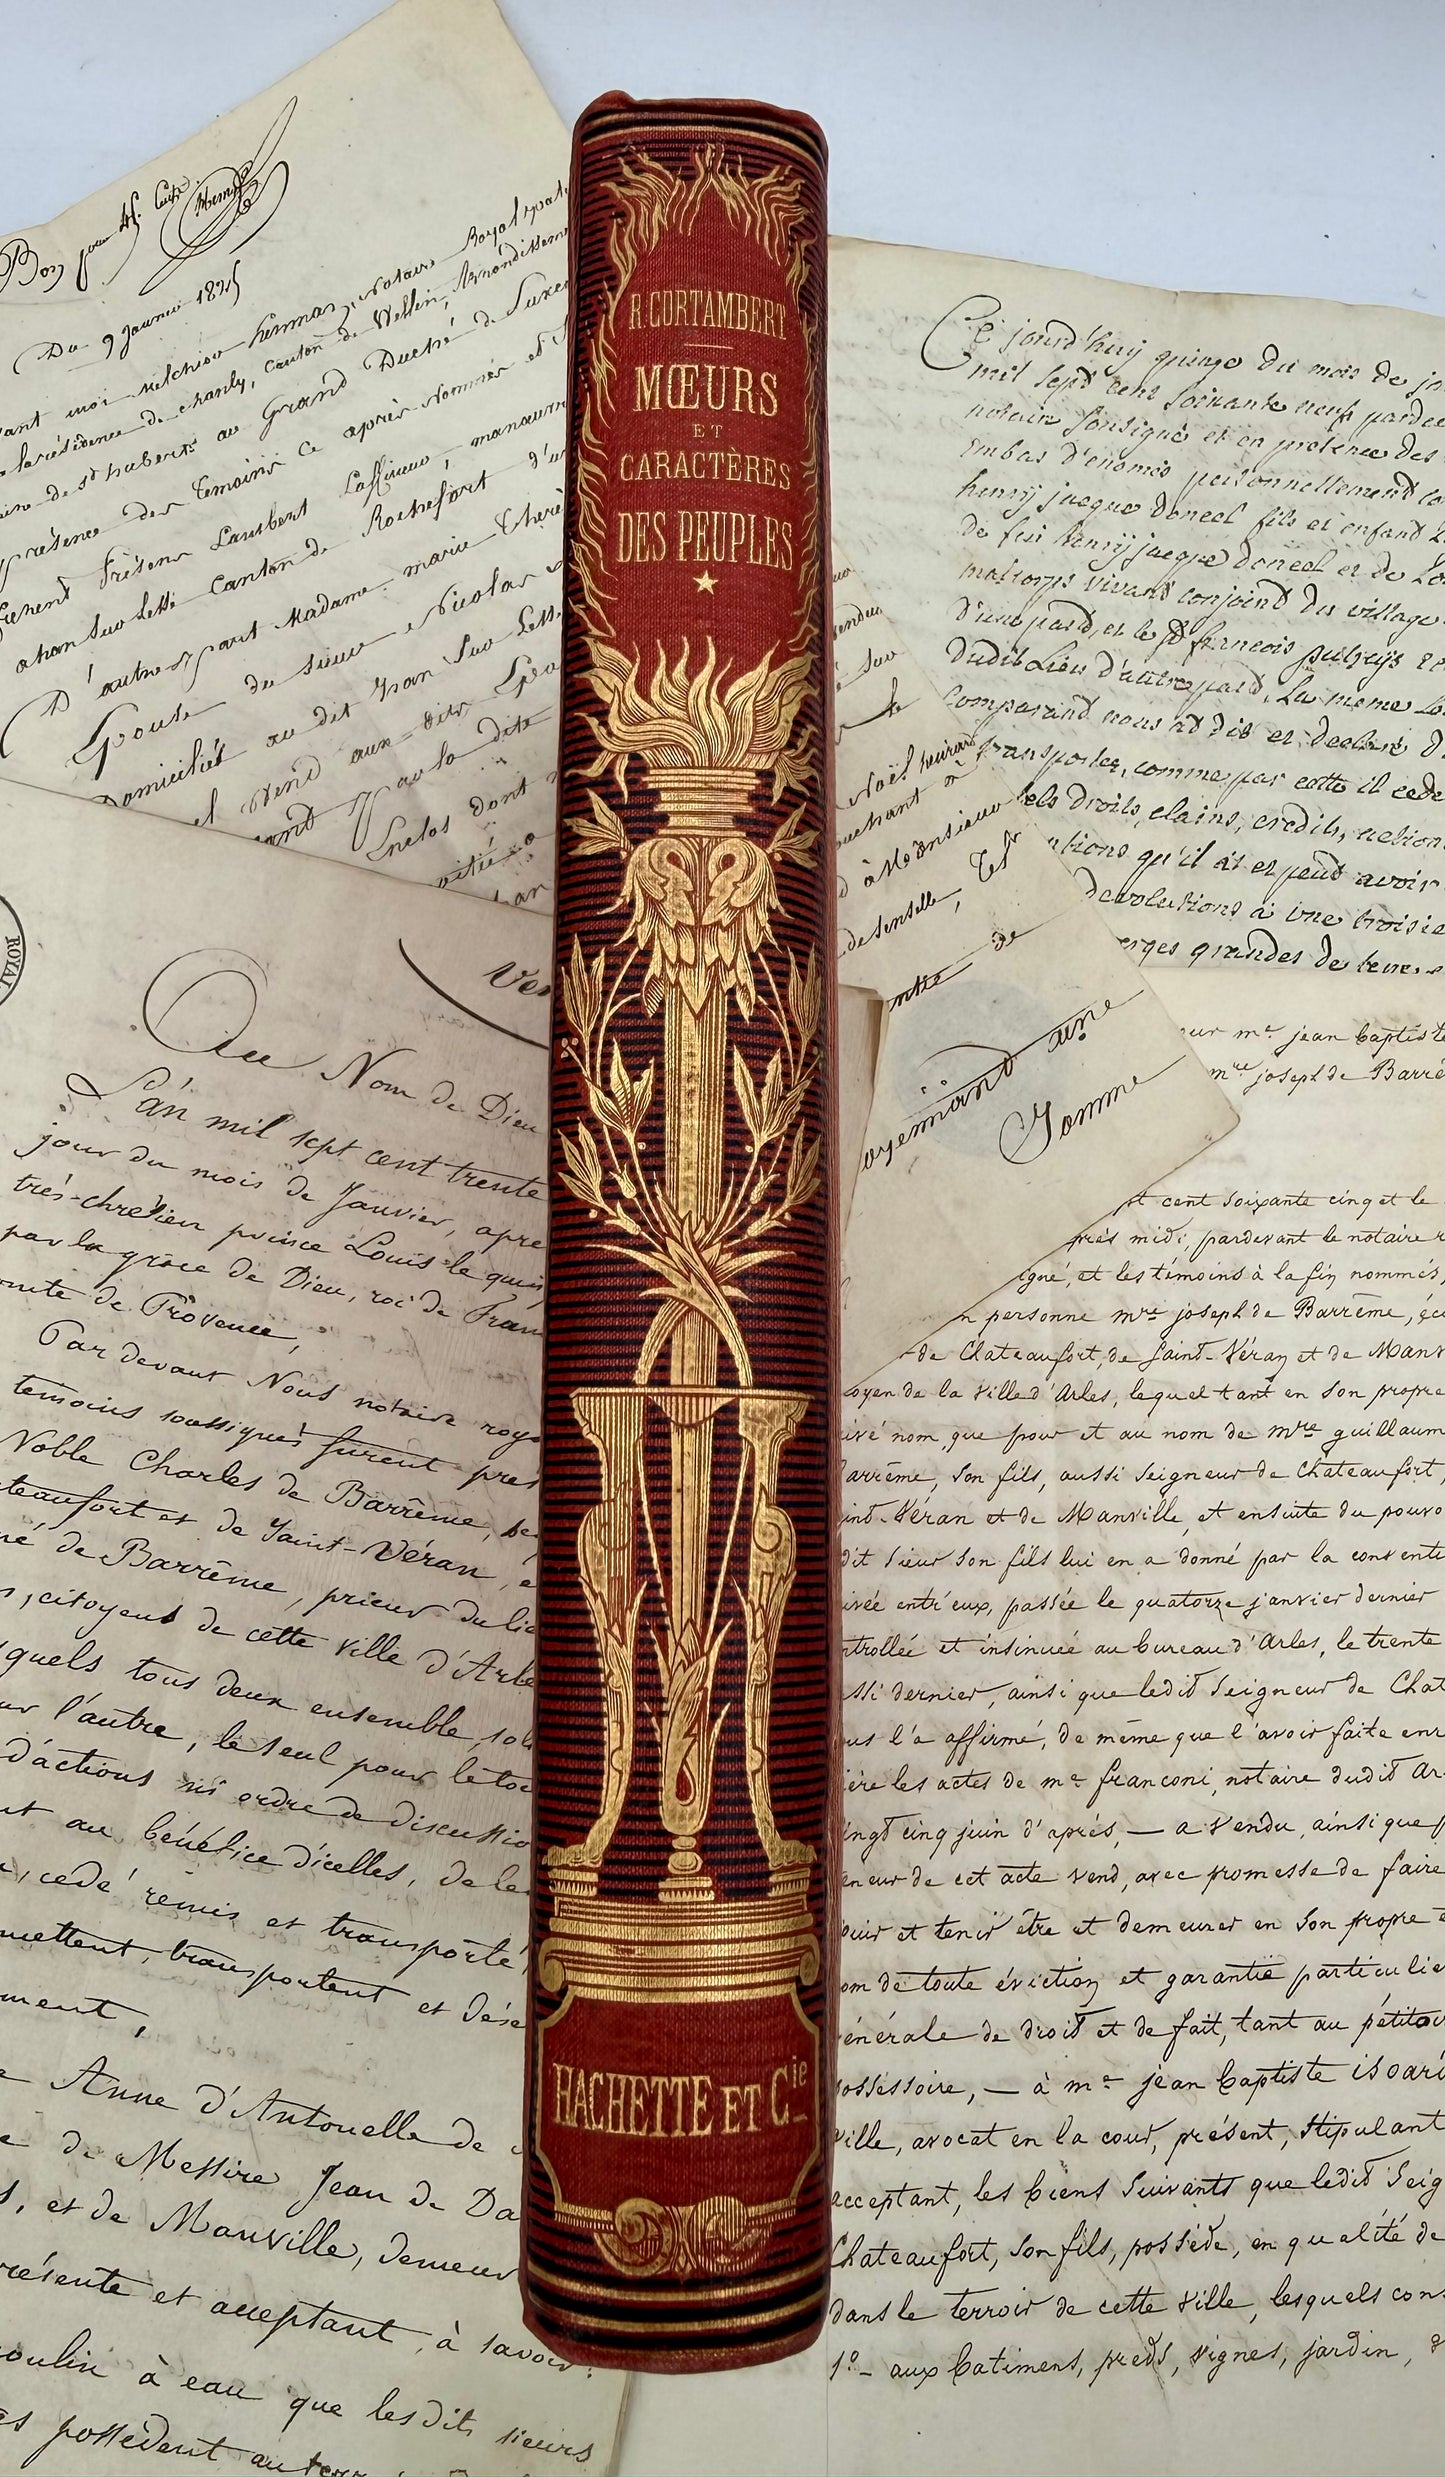 R. CORTAMBERT
MŒURS
ET
CARACTÈRES
DES PEUPLES
HACHETTE ET Cie
Bon pour
Du 9 Janvier 1825
Notaire Royal
la résidence de chanly, canton de Wellin, Arrondissement
de St hubert au Grand Duché de Luxem
présence des temoins ci après nommés et
Lambert Laffineur, manœuvre
ahan sur Lesse canton de Rochefort d'u
D'autre part Madame marie Thérè
Epouse du sieur Nicolas
Domiciliés au dit han sur Lesse
vend aux dits
par la dite
dont
Ce jourd'huy quinze du mois de
mil sept cent soixante neuf pardev
notair sousigné et en presence des
embas denomés personnellement
henry jacque doneel fils et enfant
de feu henry jacque doneel et de
vivant conjoint du village
d'une part, et le Sr francois
dudit Lieu d'autre part, La meme
comparant nous at dit et declaré
transporter, comme par cette il cede
droits, clains, credits, action
qu'il at et peut avoir
devolutions à une troisie
verges grandes de
à Monsieur
une
Somme
ROYAL
Au Nom de Dieu
L'an mil sept cent trente
jour du mois de Janvier, apre
très-chrétien prince Louis le quin
par la grace de Dieu, roi de Fran
de Provence,
Par devant Nous notaire roya
temoins soussignés furent pres
Noble Charles de Barrême,
teaufort et de Saint-Véran,
de Barrême, prieur du lie
citoyens de cette ville d'Arle
quels tous deux ensemble
l'autre, le seul pour le tou
d'actions ni ordre de discussio
au bénéfice d'icelles, de le
cedé remis et transporté,
mettent, transportent et
ment,
Anne d'Antonelle de
de Messire Jean de Da
et de Manville, demeur
présente et acceptant, à savoir:
moulin à eau que lesdits sieurs
possedent au
our me jean baptiste
mre joseph de Barrê
t cent soixante cinq et le
près midi, pardevant le notaire
igné, et les témoins à la fin nommés,
n personne mre joseph de Barrême,
de Chateaufort, de saint-Véran et de Manv
oyen de la ville d'Arles, lequel tant en son propre
ivé nom, que pour et au nom de mre guillaum
arrême, son fils, aussi seigneur de Chateaufort,
int-Véran et de Manville, et ensuite du pouvo
dit sieur son fils lui en a donné par la conventi
ivée entr'eux, passée le quatorze janvier dernier
ntrollée et insinuée au bureau d'Arles, le trente
ssi dernier, ainsi que ledit seigneur de Chat
ous l'a affirmé, de même que l'avoir faite enr
ière les actes de me franconi, notaire dudit Ar
ingt cinq juin d'après, — a vendu, ainsi que
eneur de cet acte vend, avec promesse de faire
ouir et tenir être et demeurer en son propre
om de toute éviction et garantie particulie
énérale de droit et de fait, tant au pétitoir
ossessoire, — à me jean baptiste isoard
ville, avocat en la cour, présent, stipulant
acceptant, les biens suivants que ledit seig
Chateaufort, son fils, possède, en qualité de
dans le terroir de cette ville, lesquels cons
1°- aux batimens, preds, vignes, jardin,